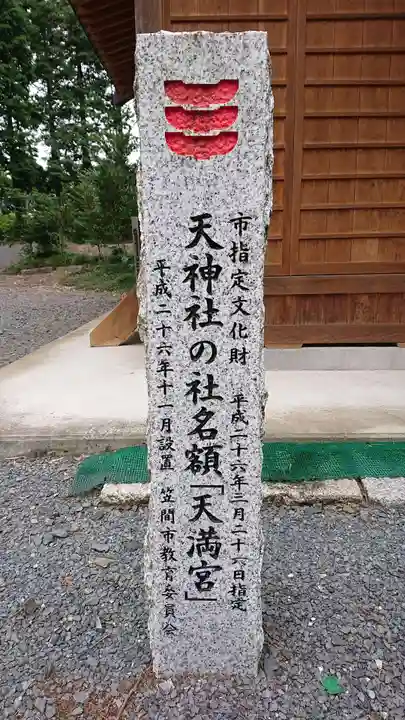 市指定文化財 平成二十六年三月二十六日指定
天神社の社名額「天満宮」
平成二十六年十一月設置 笠間市教育委員会